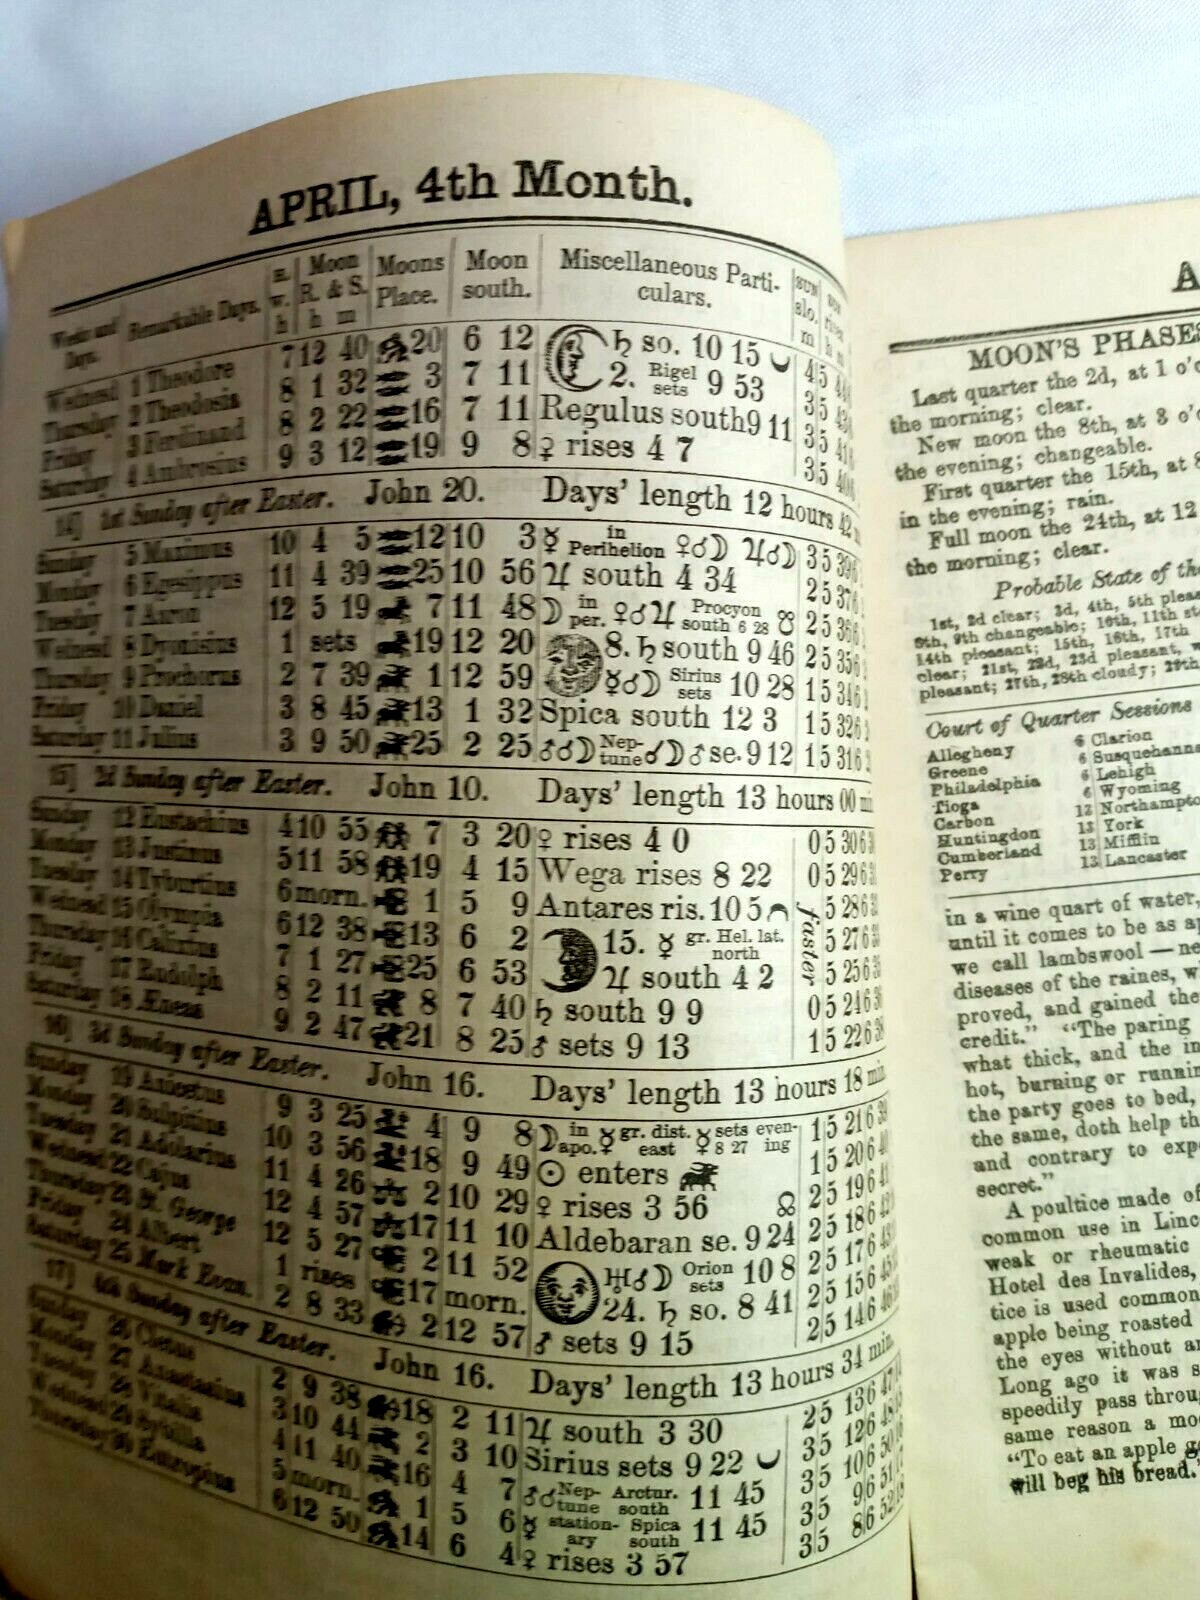 APRIL, 4th Month.
Weeks and Days. Remarkable Days. H. w. h Moon R. & S. h m Moons Place. Moon south. Miscellaneous Particulars. SUN slo. m SUN rises h m
Wednesd 1 Theodore 7 12 40 20 6 12 ♄ so. 10 15
Thursday 2 Theodosia 8 1 32 3 7 11 2. Rigel sets 9 53
Friday 3 Ferdinand 8 2 22 16 7 11 Regulus south 9 11
Saturday 4 Ambrosius 9 3 12 19 9 8 ♀ rises 4 7
14] 1st Sunday after Easter. John 20. Days' length 12 hours 42 m
Sunday 5 Maximus 10 4 5 12 10 3 ☿ in Perihelion ♀☌☽ ♃☌☽ 3 5 39 6
Monday 6 Egesippus 11 4 39 25 10 56 ♃ south 4 34 2 5 37 6
Tuesday 7 Aaron 12 5 19 7 11 48 ☽ in per. ♀☌♃ Procyon south 6 28 ☋ 2 5 36 6
Wednesd 8 Dyonisius 1 sets 19 12 20 8. ♄ south 9 46 2 5 35 6
Thursday 9 Prochorus 2 7 39 1 12 59 ☿☌☽ Sirius sets 10 28 1 5 34 6
Friday 10 Daniel 3 8 45 13 1 32 Spica south 12 3 1 5 32 6
Saturday 11 Julius 3 9 50 25 2 25 ♂☌☽ Neptune ☌☽ ♂ se. 9 12 1 5 31 6
15] 2d Sunday after Easter. John 10. Days' length 13 hours 00 min
Sunday 12 Eustachius 4 10 55 7 3 20 ♀ rises 4 0 0 5 30 6
Monday 13 Justinus 5 11 58 19 4 15 Wega rises 8 22 0 5 29 6
Tuesday 14 Tyburtius 6 morn. 1 5 9 Antares ris. 10 5 faster 5 28 6
Wednesd 15 Olympia 6 12 38 13 6 2 15. ☿ gr. Hel. lat. north 5 27 6
Thursday 16 Calixtus 7 1 27 25 6 53 ♃ south 4 2 5 25 6
Friday 17 Rudolph 8 2 11 8 7 40 ♄ south 9 9 0 5 24 6
Saturday 18 Æneas 9 2 47 21 8 25 ♂ sets 9 13 1 5 22 6 38
16] 3d Sunday after Easter. John 16. Days' length 13 hours 18 min.
Sunday 19 Anicetus 9 3 25 4 9 8 ☽ in apo. ☿ gr. dist. east ☿ sets evening 8 27 1 5 21 6 39
Monday 20 Sulpitius 10 3 56 18 9 49 ☉ enters 1 5 20 6 40
Tuesday 21 Adolarius 11 4 26 2 10 29 ♀ rises 3 56 ☊ 2 5 19 6 41
Wednesd 22 Cajus 12 4 57 17 11 10 Aldebaran se. 9 24 2 5 18 6
Thursday 23 St. George 12 5 27 2 11 52 ♅☌☽ Orion sets 10 8 2 5 17 6
Friday 24 Albert 1 rises 17 morn. 24. ♄ so. 8 41 2 5 15 6
Saturday 25 Mark Evan. 2 8 33 2 12 57 ♂ sets 9 15 2 5 14 6 46
17] 4th Sunday after Easter. John 16. Days' length 13 hours 34 min.
Sunday 26 Cletus 2 9 38 18 2 11 ♃ south 3 30 2 5 13 6 47
Monday 27 Anastasius 3 10 44 2 3 10 Sirius sets 9 22 3 5 12 6 48
Tuesday 28 Vitalis 4 11 40 16 4 7 ♂☌ Neptune Arctur. south 11 45 3 5 10 6 50
Wednesd 29 Sybilla 5 morn. 1 5 6 ☿ stationary Spica south 11 45 3 5 9 6 51
Thursday 30 Eutropius 6 12 50 14 6 4 ♀ rises 3 57 3 5 8 6 52
A
MOON'S PHASES
Last quarter the 2d, at 1 o'c
the morning; clear.
New moon the 8th, at 3 o'c
the evening; changeable.
First quarter the 15th, at 8
in the evening; rain.
Full moon the 24th, at 12
the morning; clear.
Probable State of the
1st, 2d clear; 3d, 4th, 5th pleas
8th, 9th changeable; 10th, 11th st
14th pleasant; 15th, 16th, 17th
clear; 21st, 22d, 23d pleasant, w
pleasant; 27th, 28th cloudy; 29th,
Court of Quarter Sessions
Allegheny 6 Clarion
Greene 6 Susquehanna
Philadelphia 6 Lehigh
Tioga 6 Wyoming
Carbon 13 Northampto
Huntingdon 13 York
Cumberland 13 Mifflin
Perry 13 Lancaster
in a wine quart of water,
until it comes to be as ap
we call lambswool — ne
diseases of the raines, w
proved, and gained the
credit." "The paring
what thick, and the in
hot, burning or runnin
the party goes to bed,
the same, doth help th
and contrary to expe
secret."
A poultice made of
common use in Linc
weak or rheumatic
Hotel des Invalides,
tice is used common
apple being roasted
the eyes without an
Long ago it was s
speedily pass throug
same reason a mo
"To eat an apple go
will beg his bread."